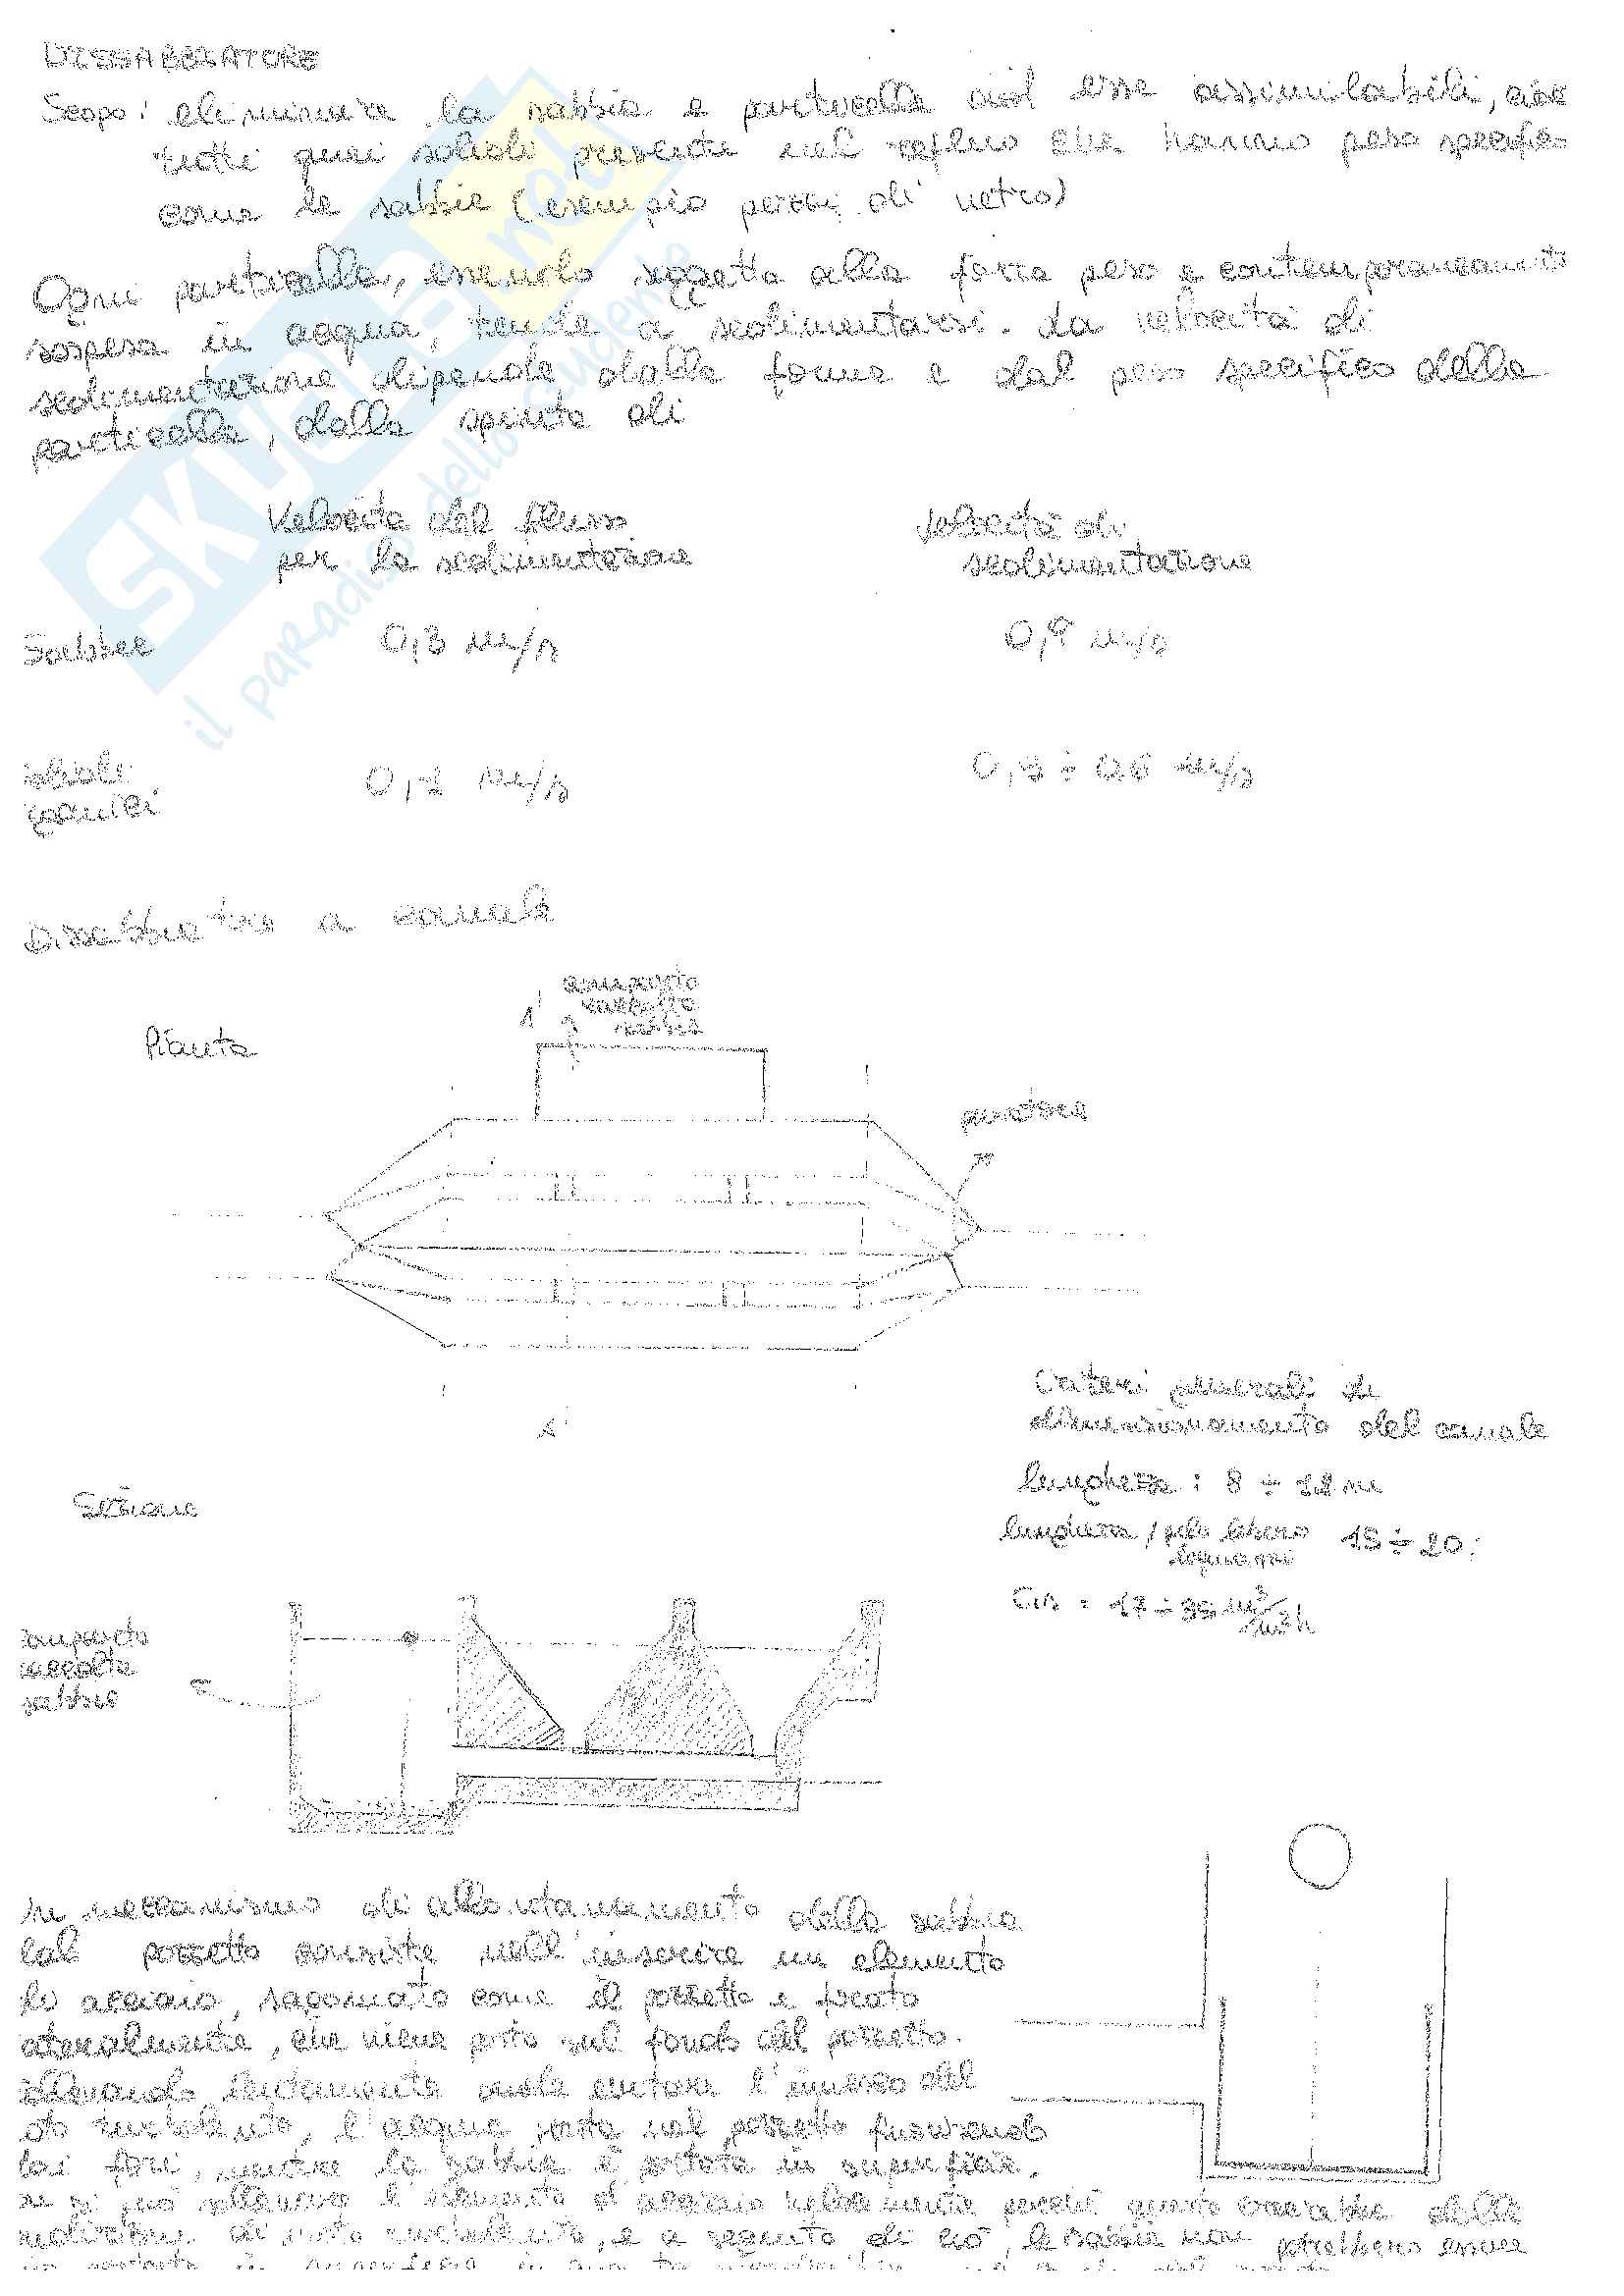 DISSABBIATORE
Scopo: eliminare la sabbia e particelle ad esse assimilabili, cioè
tutti quei solidi presenti nel refluo che hanno peso specifico
come le sabbie (esempio pezzi di vetro)
Ogni particella, essendo soggetta alla forza peso e contemporaneamente
sospesa in acqua, tende a sedimentarsi. La velocità di
sedimentazione dipende dalla forma e dal peso specifico della
particella, dalla spinta di
Velocità del flusso
per la sedimentazione
Velocità di
sedimentazione
Sabbie 0,3 m/s
solidi 0,1 m/s
organici
Dissabbiatore a canale
comparto
raccolta
sabbia
Pianta
paratoia
Criteri generali di
dimensionamento del canale
lunghezza: 8 ÷ 12 m
lunghezza / pelo libero 15 ÷ 20
Sezione
comparto
raccolta
sabbie
meccanismo di allontanamento della sabbia
pozzetto consiste nell'inserire un elemento
acciaio, sagomato come il pozzetto e forato
lateralmente, che viene posto sul fondo del pozzetto.
lentamente onde evitare l'innesco del
moto turbolento, l'acqua resta nel pozzetto
fori, mentre la sabbia è portata in superficie.
si può l'elemento d'acciaio velocemente perché questo creerebbe delle
di moto turbolento, e a seguito di ciò, le sabbie non potrebbero essere
SKUOLA.net
il paradiso dello studente